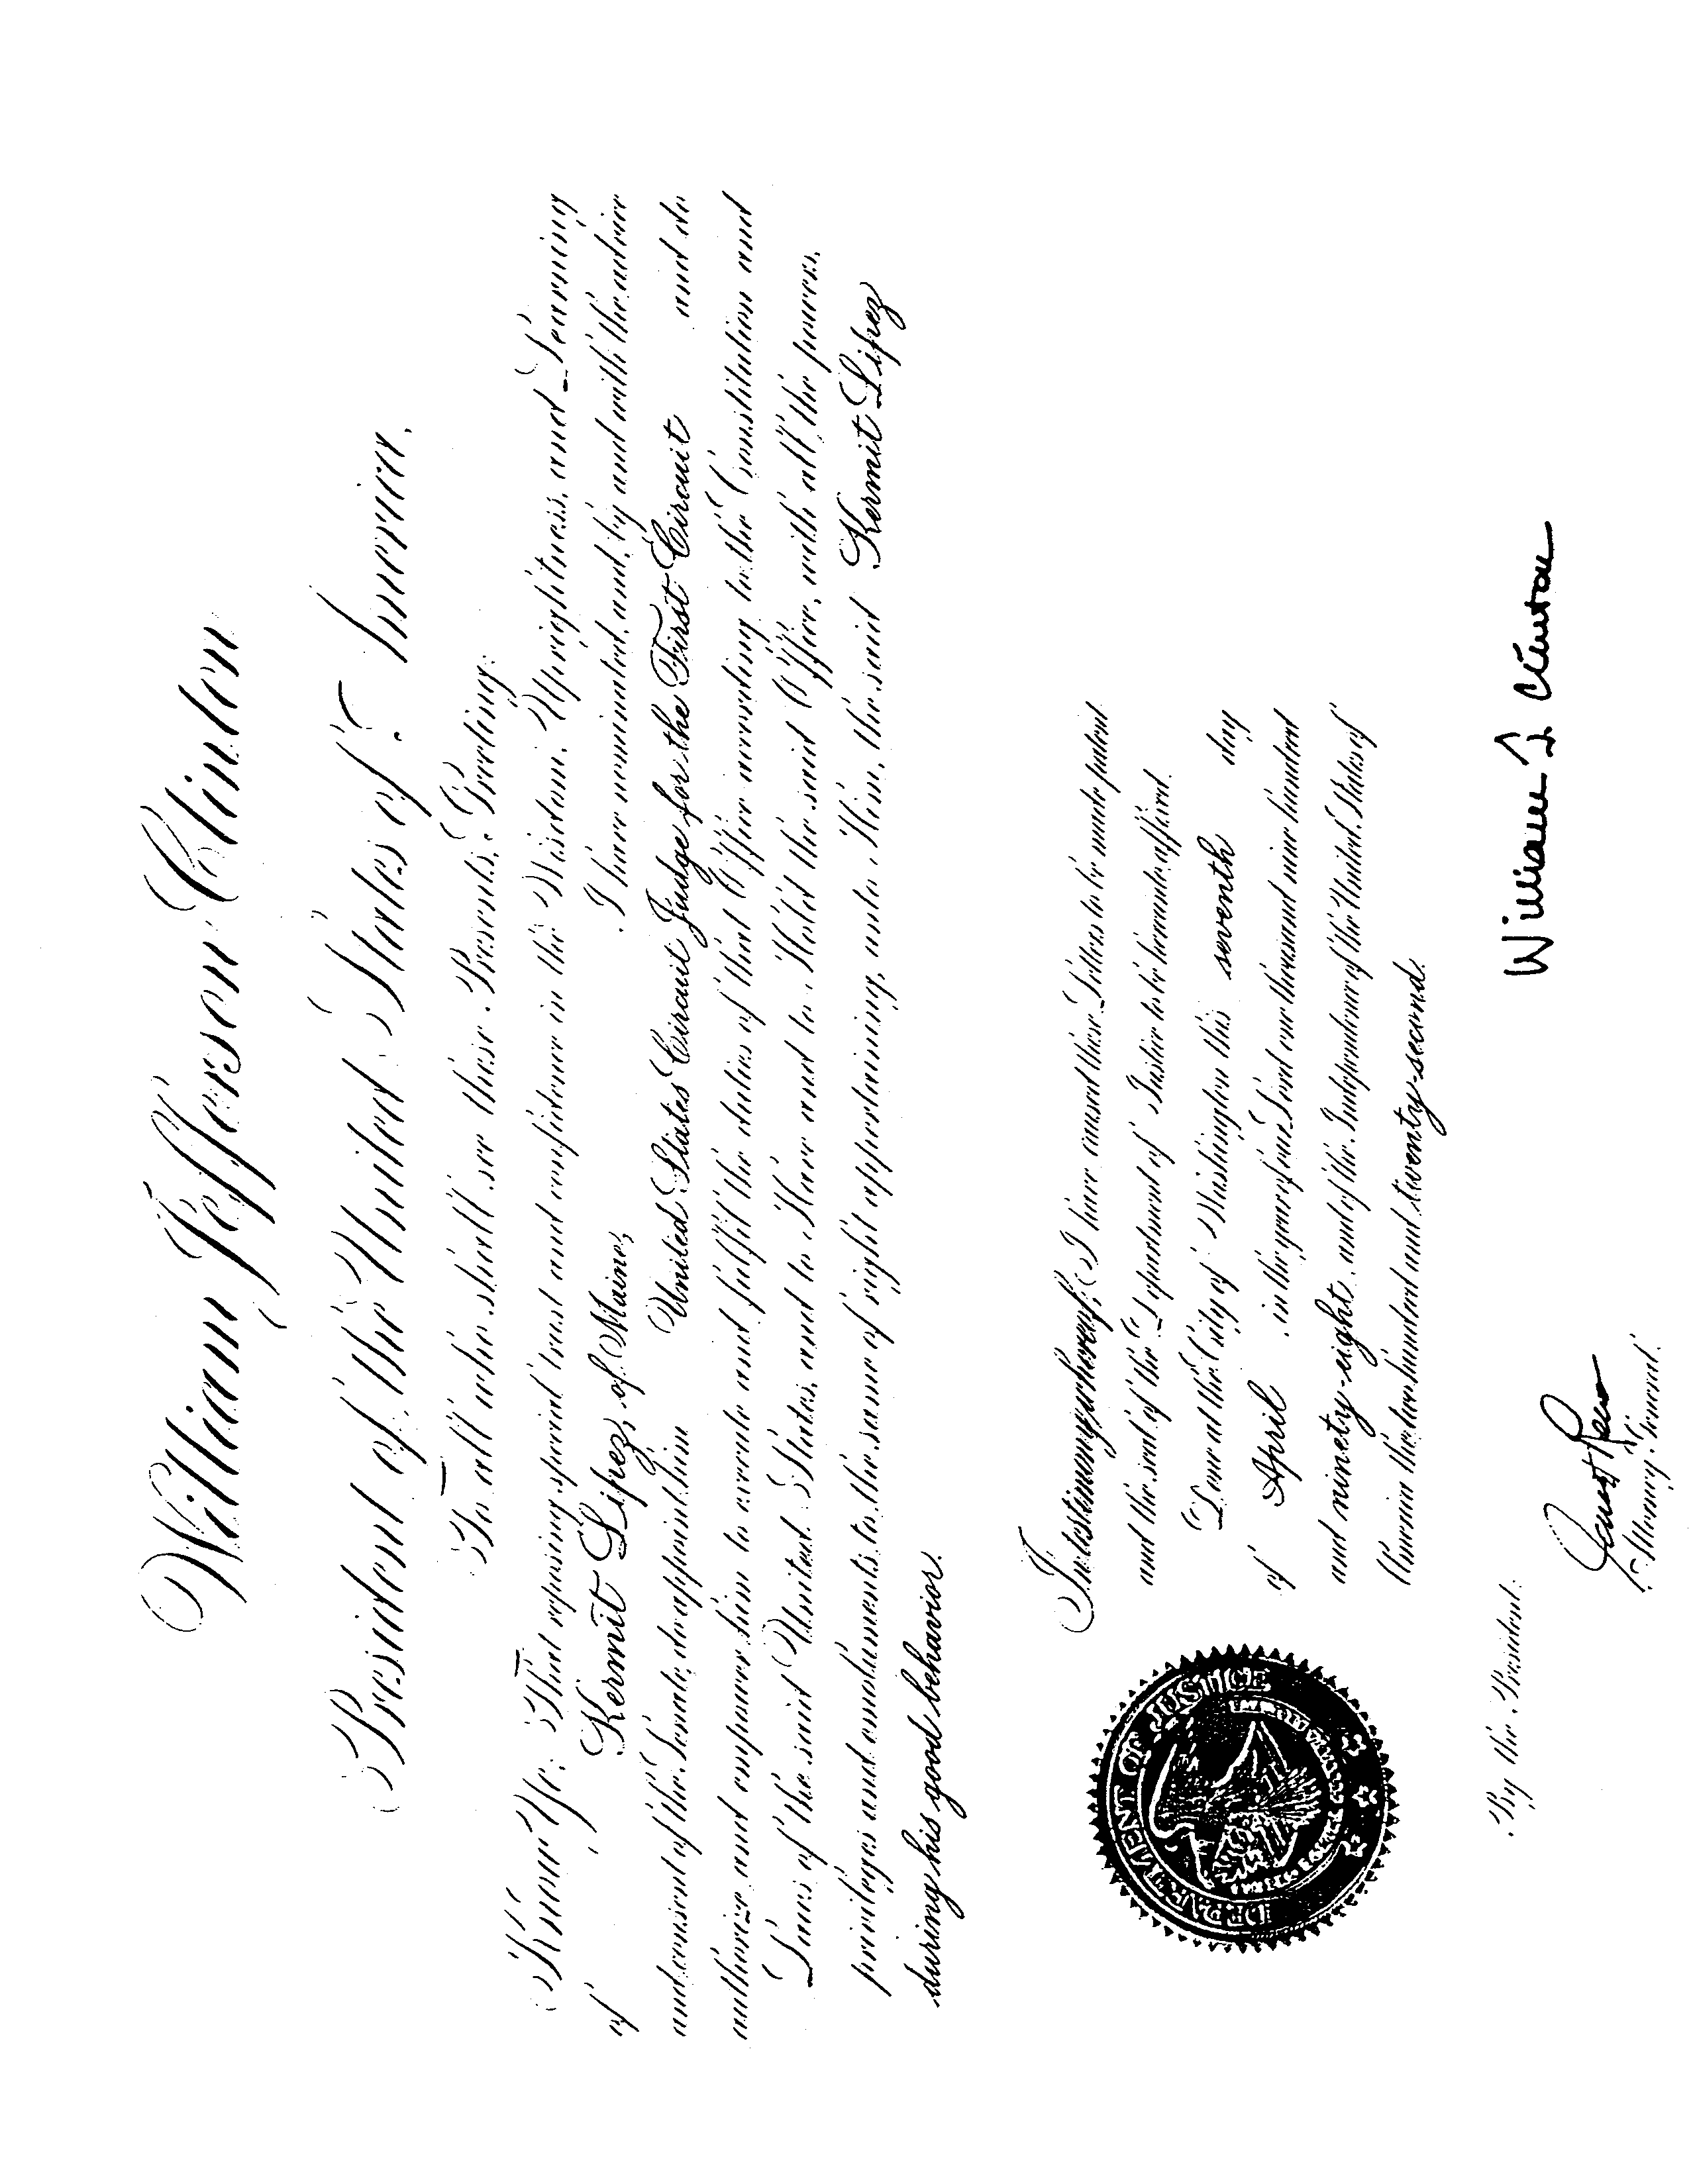 William Jefferson Clinton
President of the United States of America,
To all who shall see these Presents, Greeting:
Know Ye; That reposing special trust and confidence in the Wisdom, Uprightness, and Learning
of Kermit Lipez, of Maine, I have nominated, and, by and with the advice
and consent of the Senate, do appoint him United States Circuit Judge for the First Circuit and do
authorize and empower him to execute and fulfil the duties of that Office according to the Constitution and
Laws of the said United States, and to Have and to Hold the said Office, with all the powers,
privileges and emoluments to the same of right appertaining, unto Him, the said Kermit Lipez
during his good behavior.
In testimony whereof, I have caused these Letters to be made patent
and the seal of the Department of Justice to be hereunto affixed.
Done at the City of Washington this seventh day
of April, in the year of our Lord one thousand nine hundred
and ninety-eight, and of the Independence of the United States of
America the two hundred and twenty-second.
DEPARTMENT OF JUSTICE
William J. Clinton
By the President:
Janet Reno
Attorney General.